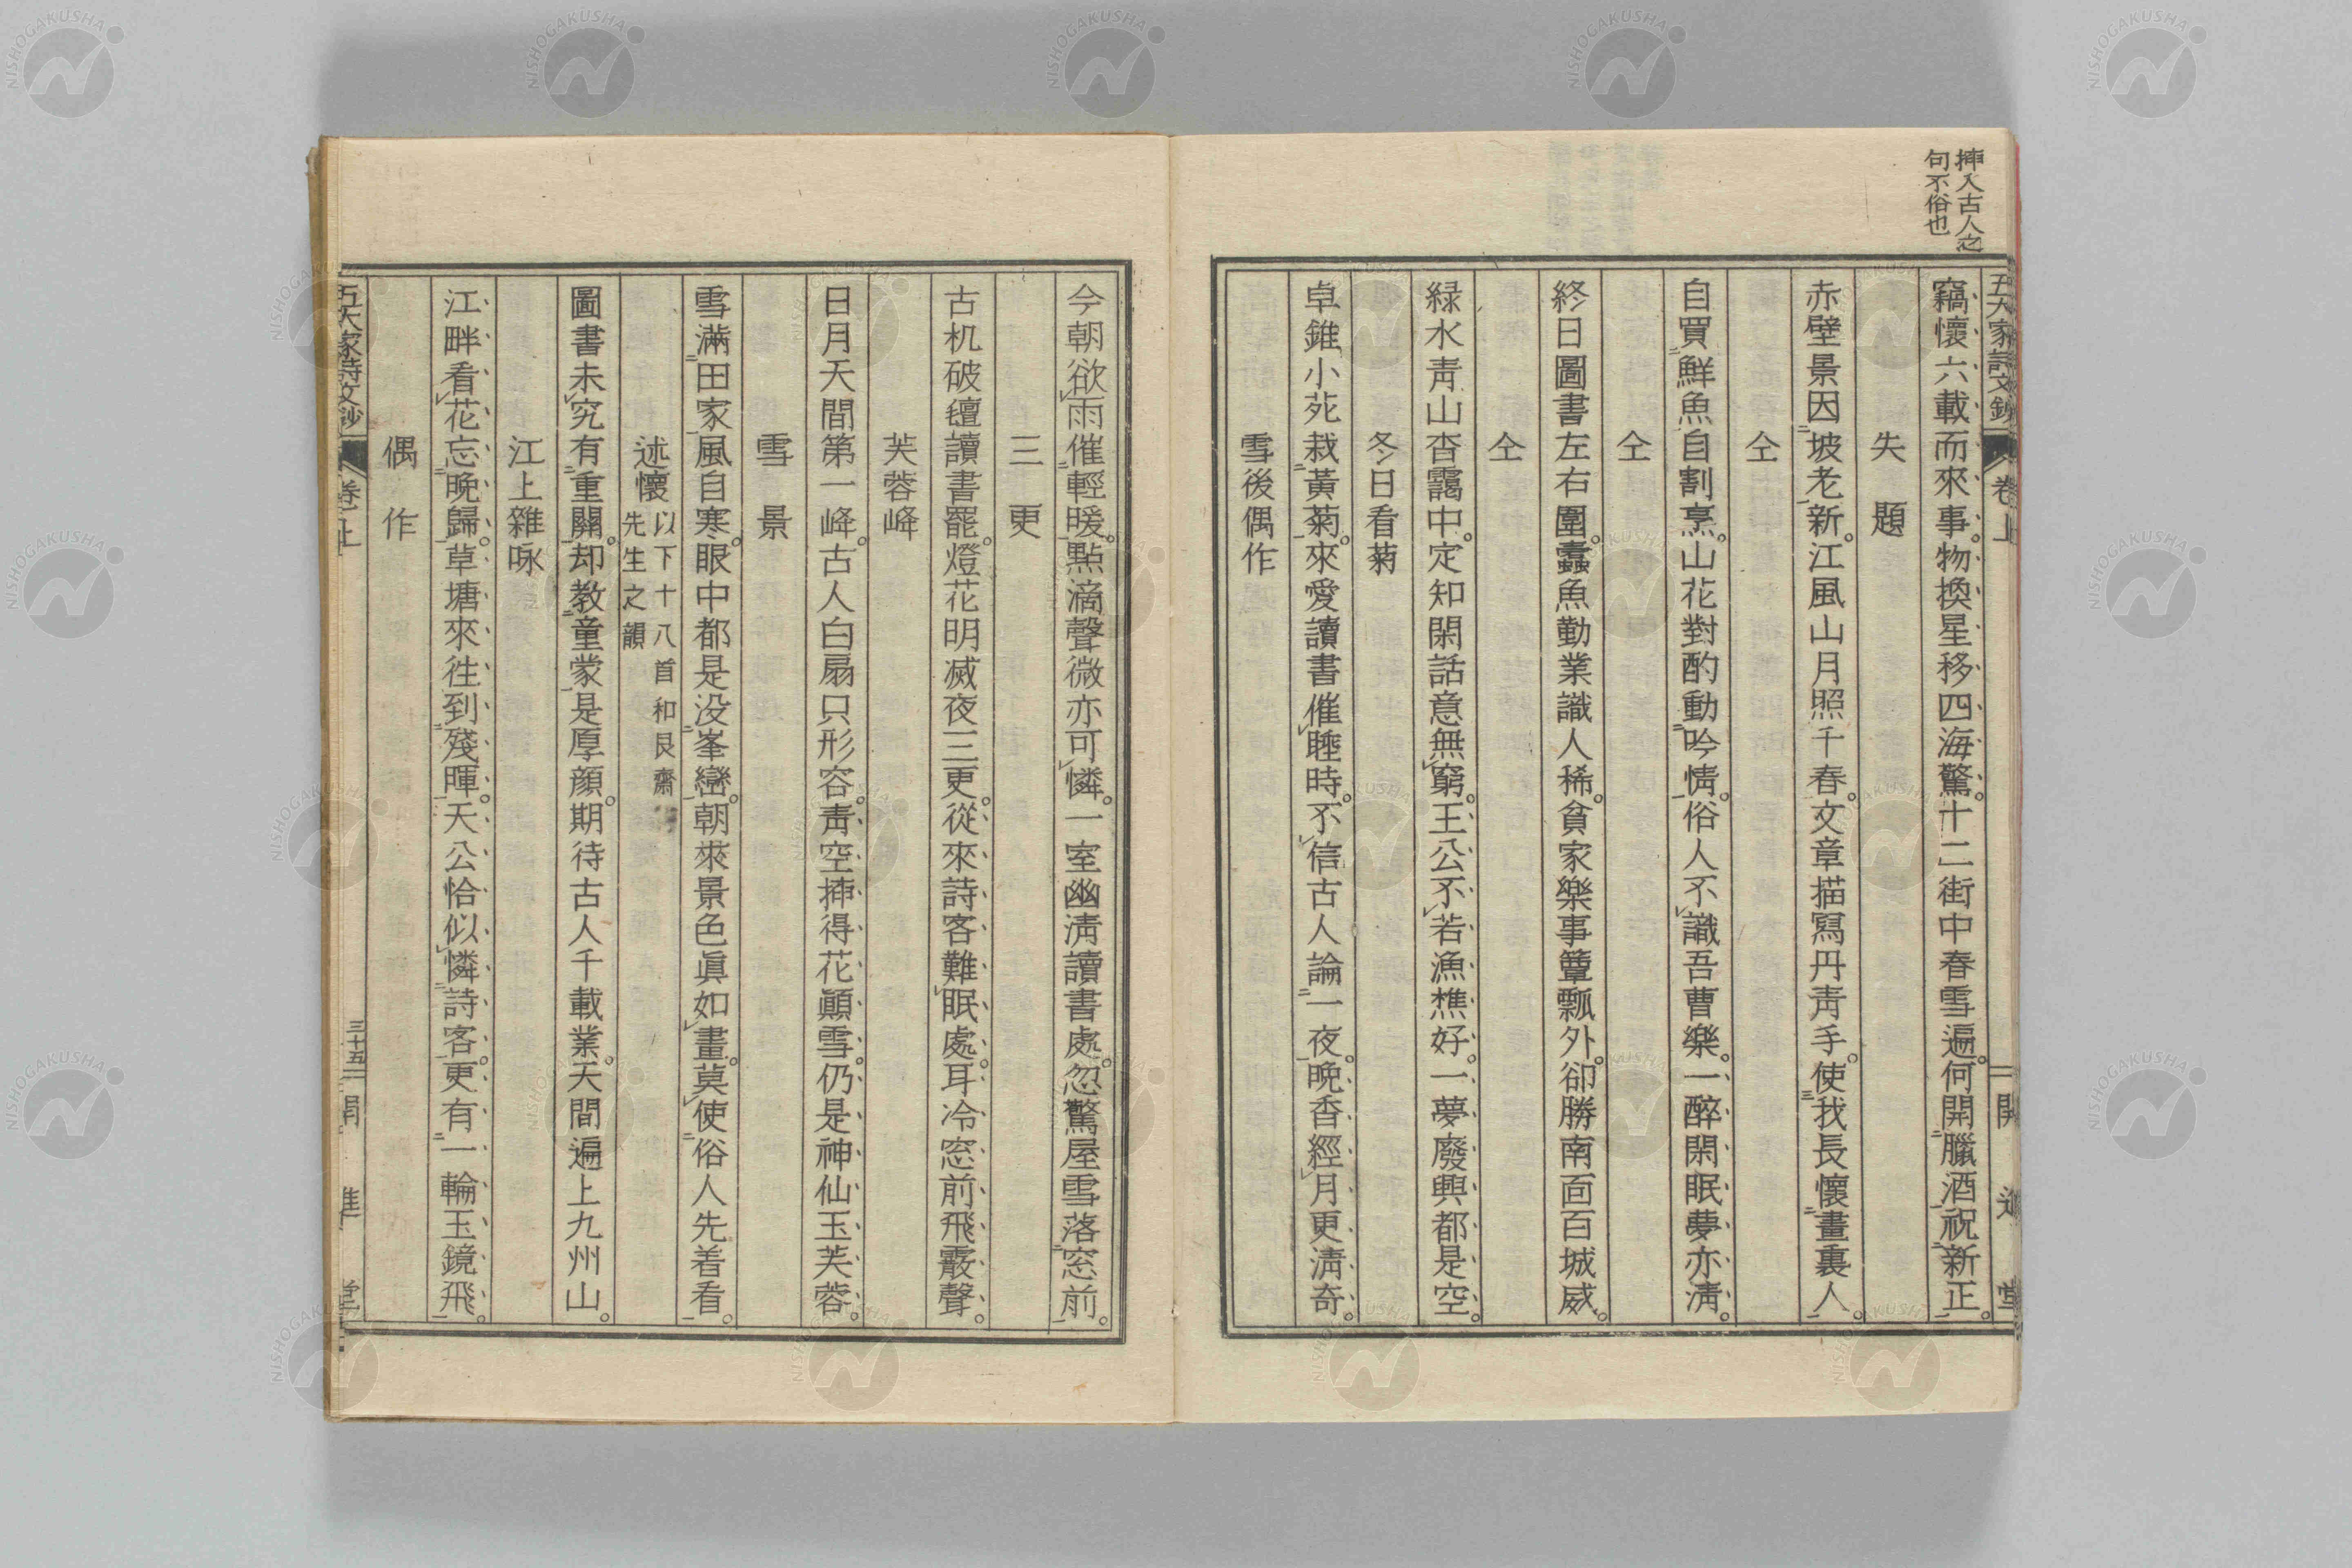 挿入古人之
句不俗也
五大家詩文鈔 卷上 開進堂
竊懷六載而來事。物換星移四海驚。十二街中春雪遍。何開臘酒祝新正。
失題
赤壁景因坡老新。江風山月照千春。文章描寫丹靑手。使我長懷畫裏人。
仝
自買鮮魚自割烹。山花對酌動吟情。俗人不識吾曹樂。一醉閑眠夢亦淸。
仝
終日圖書左右圍。蠹魚勤業識人稀。貧家樂事簞瓢外。卻勝南面百城威。
仝
緑水靑山杳靄中。定知閑話意無窮。王公不若漁樵好。一夢廢興都是空。
冬日看菊
卓錐小苑栽黃菊。來愛讀書催睡時。不信古人論一夜。晩香經月更淸奇。
雪後偶作
今朝欲雨催輕暖。點滴聲微亦可憐。一室幽淸讀書處。忽驚屋雪落窓前。
三更
古机破氊讀書罷。燈花明滅夜三更。從來詩客難眠處。耳冷窓前飛霰聲。
芙蓉峰
日月天間第一峰。古人白扇只形容。靑空挿得花顚雪。仍是神仙玉芙蓉。
雪景
雪滿田家風自寒。眼中都是没峯巒。朝來景色眞如畫。莫使俗人先着看。
述懷 以下十八首和艮齋先生之韻
圖書未究有重關。却教童蒙是厚顔。期待古人千載業。天間遍上九州山。
江上雜咏
江畔看花忘晩歸。草塘來往到殘暉。天公恰似憐詩客。更有一輪玉鏡飛。
偶作
五大家詩文鈔 卷上 三十五 開進堂
NISHOGAKUSHA